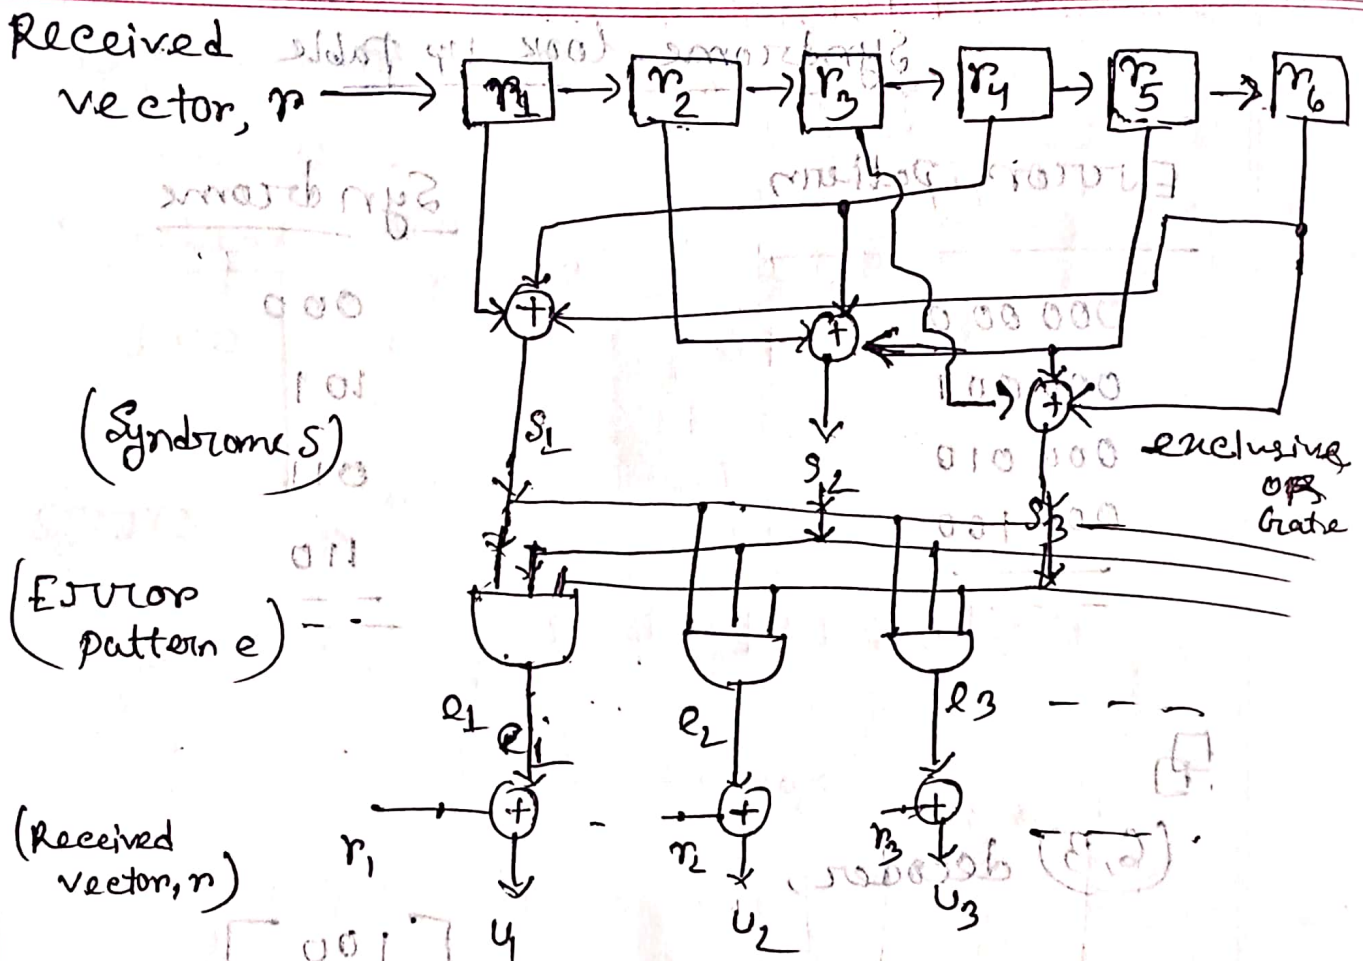 Received
vector, r
r1 r2 r3 r4 r5 r6
+
+
+
(Syndrome S)
S1
S2
S3
exclusive
OR
Gate
(Error
pattern e)
e1 e2 e3
e1
(Received
vector, r)
r1 + r2 + r3 +
U1 U2 U3